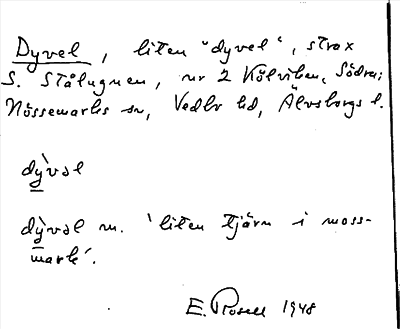 Dyvel, liten "dyvel", strax
S. Stålugnen, nr 2 Kölviken, Södra;
Nössemarks sn, Vedbo hd, Älvsborgs l.
dỳvəl
dỳvəl m. 'liten tjärn i moss-
mark'.
E. Rosell 1948